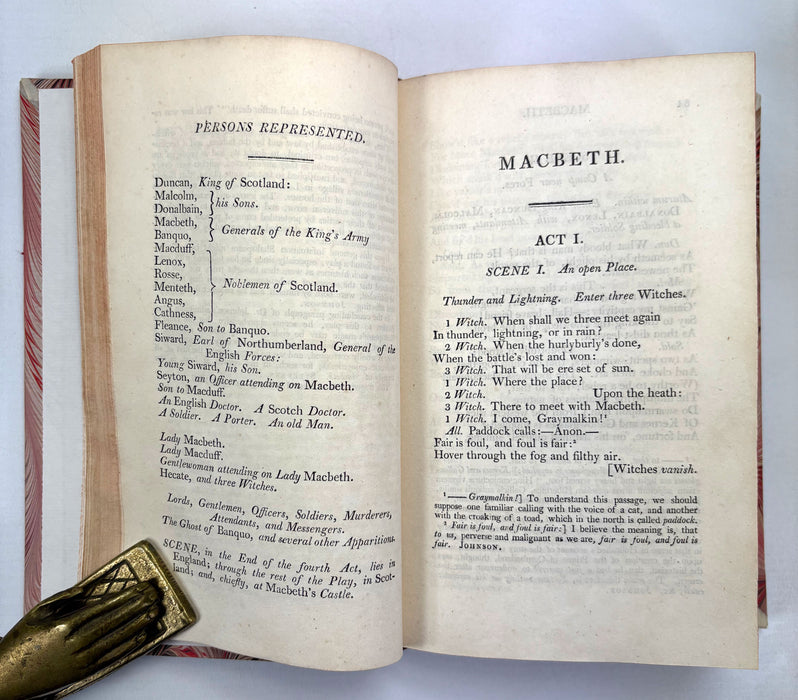 PERSONS REPRESENTED.
Duncan, King of Scotland:
Malcolm,
Donalbain,
his Sons.
Macbeth,
Banquo,
Generals of the King's Army
Macduff,
Lenox,
Rosse,
Menteth,
Angus,
Cathness,
Noblemen of Scotland.
Fleance, Son to Banquo.
Siward, Earl of Northumberland, General of the
English Forces:
Young Siward, his Son.
Seyton, an Officer attending on Macbeth.
Son to Macduff.
An English Doctor. A Scotch Doctor.
A Soldier. A Porter. An old Man.
Lady Macbeth.
Lady Macduff.
Gentlewoman attending on Lady Macbeth.
Hecate, and three Witches.
Lords, Gentlemen, Officers, Soldiers, Murderers,
Attendants, and Messengers.
The Ghost of Banquo, and several other Apparitions.
SCENE, in the End of the fourth Act, lies in
England; through the rest of the Play, in Scot-
land; and, chiefly, at Macbeth's Castle.
MACBETH.
ACT I.
SCENE I. An open Place.
Thunder and Lightning. Enter three Witches.
1 Witch. When shall we three meet again
In thunder, lightning, or in rain?
2 Witch. When the hurlyburly's done,
When the battle's lost and won:
3 Witch. That will be ere set of sun.
1 Witch. Where the place?
2 Witch. Upon the heath:
3 Witch. There to meet with Macbeth.
1 Witch. I come, Graymalkin!¹
All. Paddock calls:—Anon.—
Fair is foul, and foul is fair:²
Hover through the fog and filthy air.
[Witches vanish.
¹ —— Graymalkin!] To understand this passage, we should
suppose one familiar calling with the voice of a cat, and another
with the croaking of a toad, which in the north is called paddock.
² Fair is foul, and foul is fair:] I believe the meaning is, that
to us, perverse and malignant as we are, fair is foul, and foul is
fair. JOHNSON.